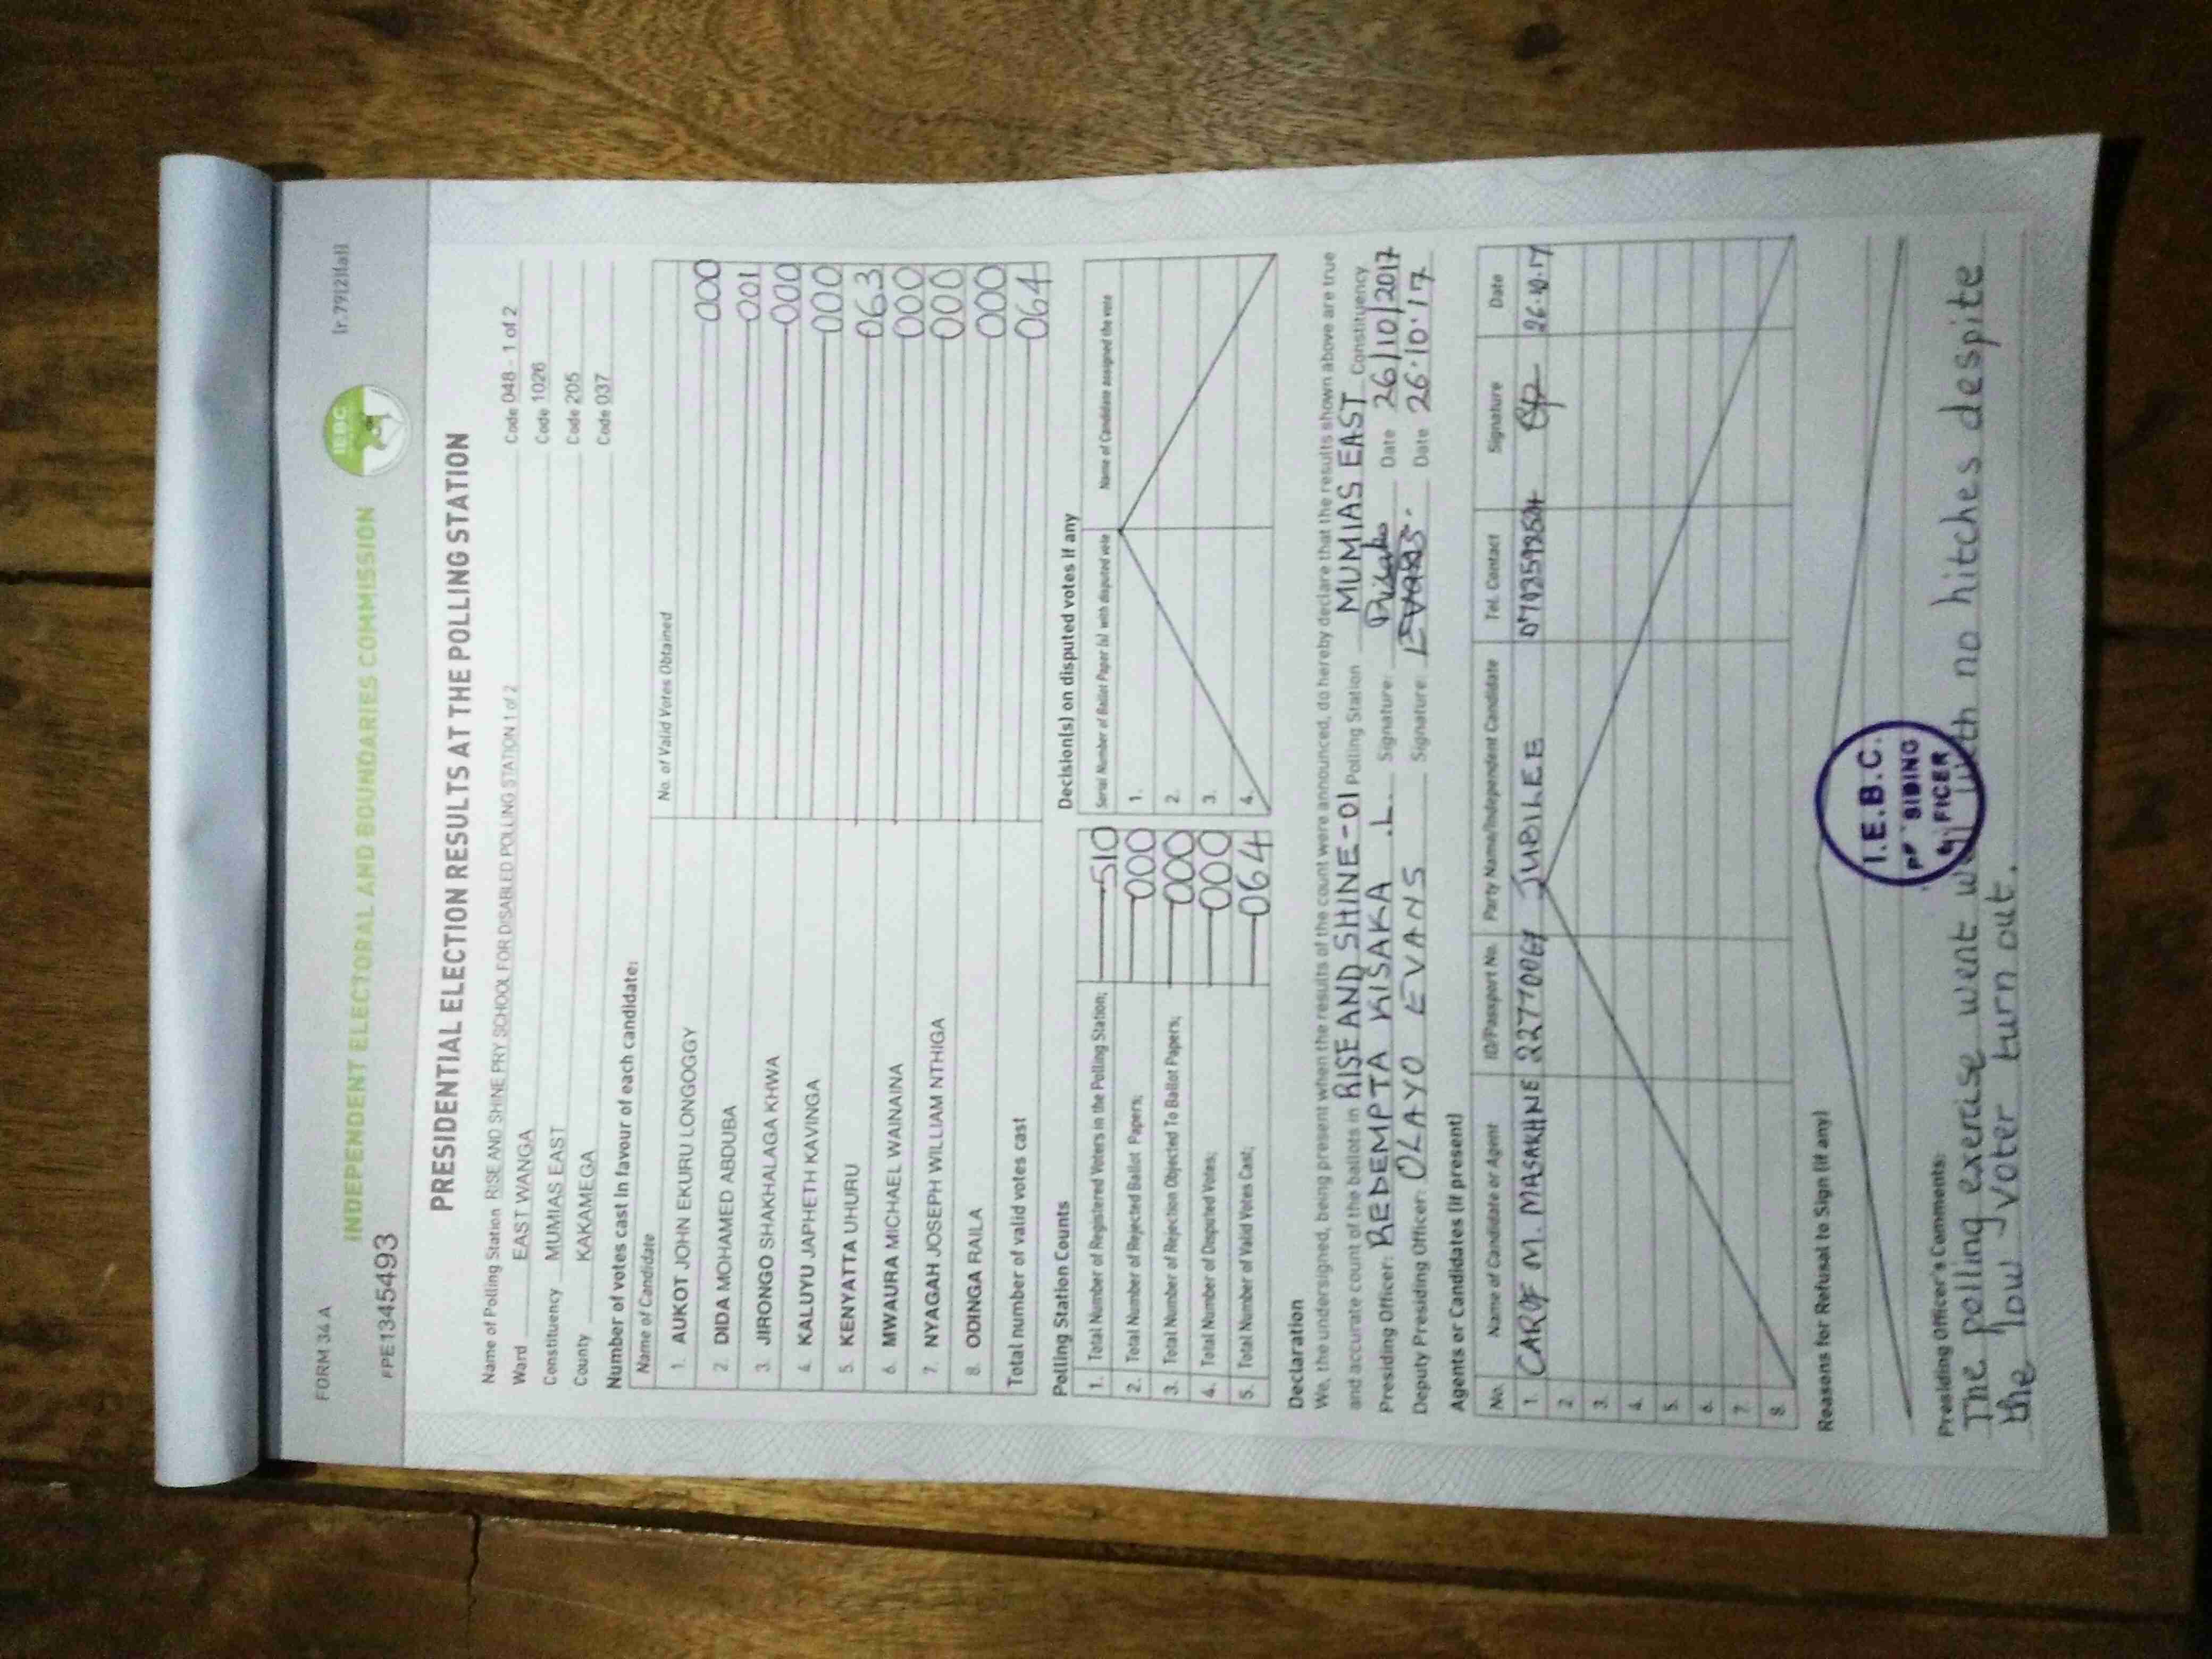 FORM 34 A
(r.79(2)(a))
INDEPENDENT ELECTORAL AND BOUNDARIES COMMISSION
IEBC
PPE1345493
PRESIDENTIAL ELECTION RESULTS AT THE POLLING STATION
Name of Polling Station RISE AND SHINE PRY SCHOOL FOR DISABLED POLLING STATION 1 of 2 Code 048 - 1 of 2
Ward EAST WANGA Code 1026
Constituency MUMIAS EAST Code 205
County KAKAMEGA Code 037
Number of votes cast in favour of each candidate:
Name of Candidate No. of Valid Votes Obtained
1. AUKOT JOHN EKURU LONGOGGY 000
2. DIDA MOHAMED ABDUBA 001
3. JIRONGO SHAKHALAGA KHWA 000
4. KALUYU JAPHETH KAVINGA 000
5. KENYATTA UHURU 063
6. MWAURA MICHAEL WAINAINA 000
7. NYAGAH JOSEPH WILLIAM NTHIGA 000
8. ODINGA RAILA 000
Total number of valid votes cast 064
Polling Station Counts
1. Total Number of Registered Voters in the Polling Station; 510
2. Total Number of Rejected Ballot Papers; 000
3. Total Number of Rejection Objected To Ballot Papers; 000
4. Total Number of Disputed Votes; 000
5. Total Number of Valid Votes Cast; 064
Decision(s) on disputed votes if any
Serial Number of Ballot Paper (s) with disputed vote Name of Candidate assigned the vote
1.
2.
3.
4.
Declaration
We, the undersigned, being present when the results of the count were announced, do hereby declare that the results shown above are true
and accurate count of the ballots in RISE AND SHINE-01 Polling Station MUMIAS EAST Constituency
Presiding Officer: REDEMPTA KISAKA .L. Signature: Date 26/10/2017
Deputy Presiding Officer: OLAYO EVANS Signature: Evans. Date 26.10.17
Agents or Candidates (if present)
No. Name of Candidate or Agent ID/Passport No. Party Name/Independent Candidate Tel. Contact Signature Date
1. M. JUBILEE 26.10.17
2.
3.
4.
5.
6.
7.
8.
Reasons for Refusal to Sign (if any)
I.E.B.C.
SIDING
FICER
Presiding Officer's Comments:
The polling exercise went well with no hitches despite
the low voter turn out.